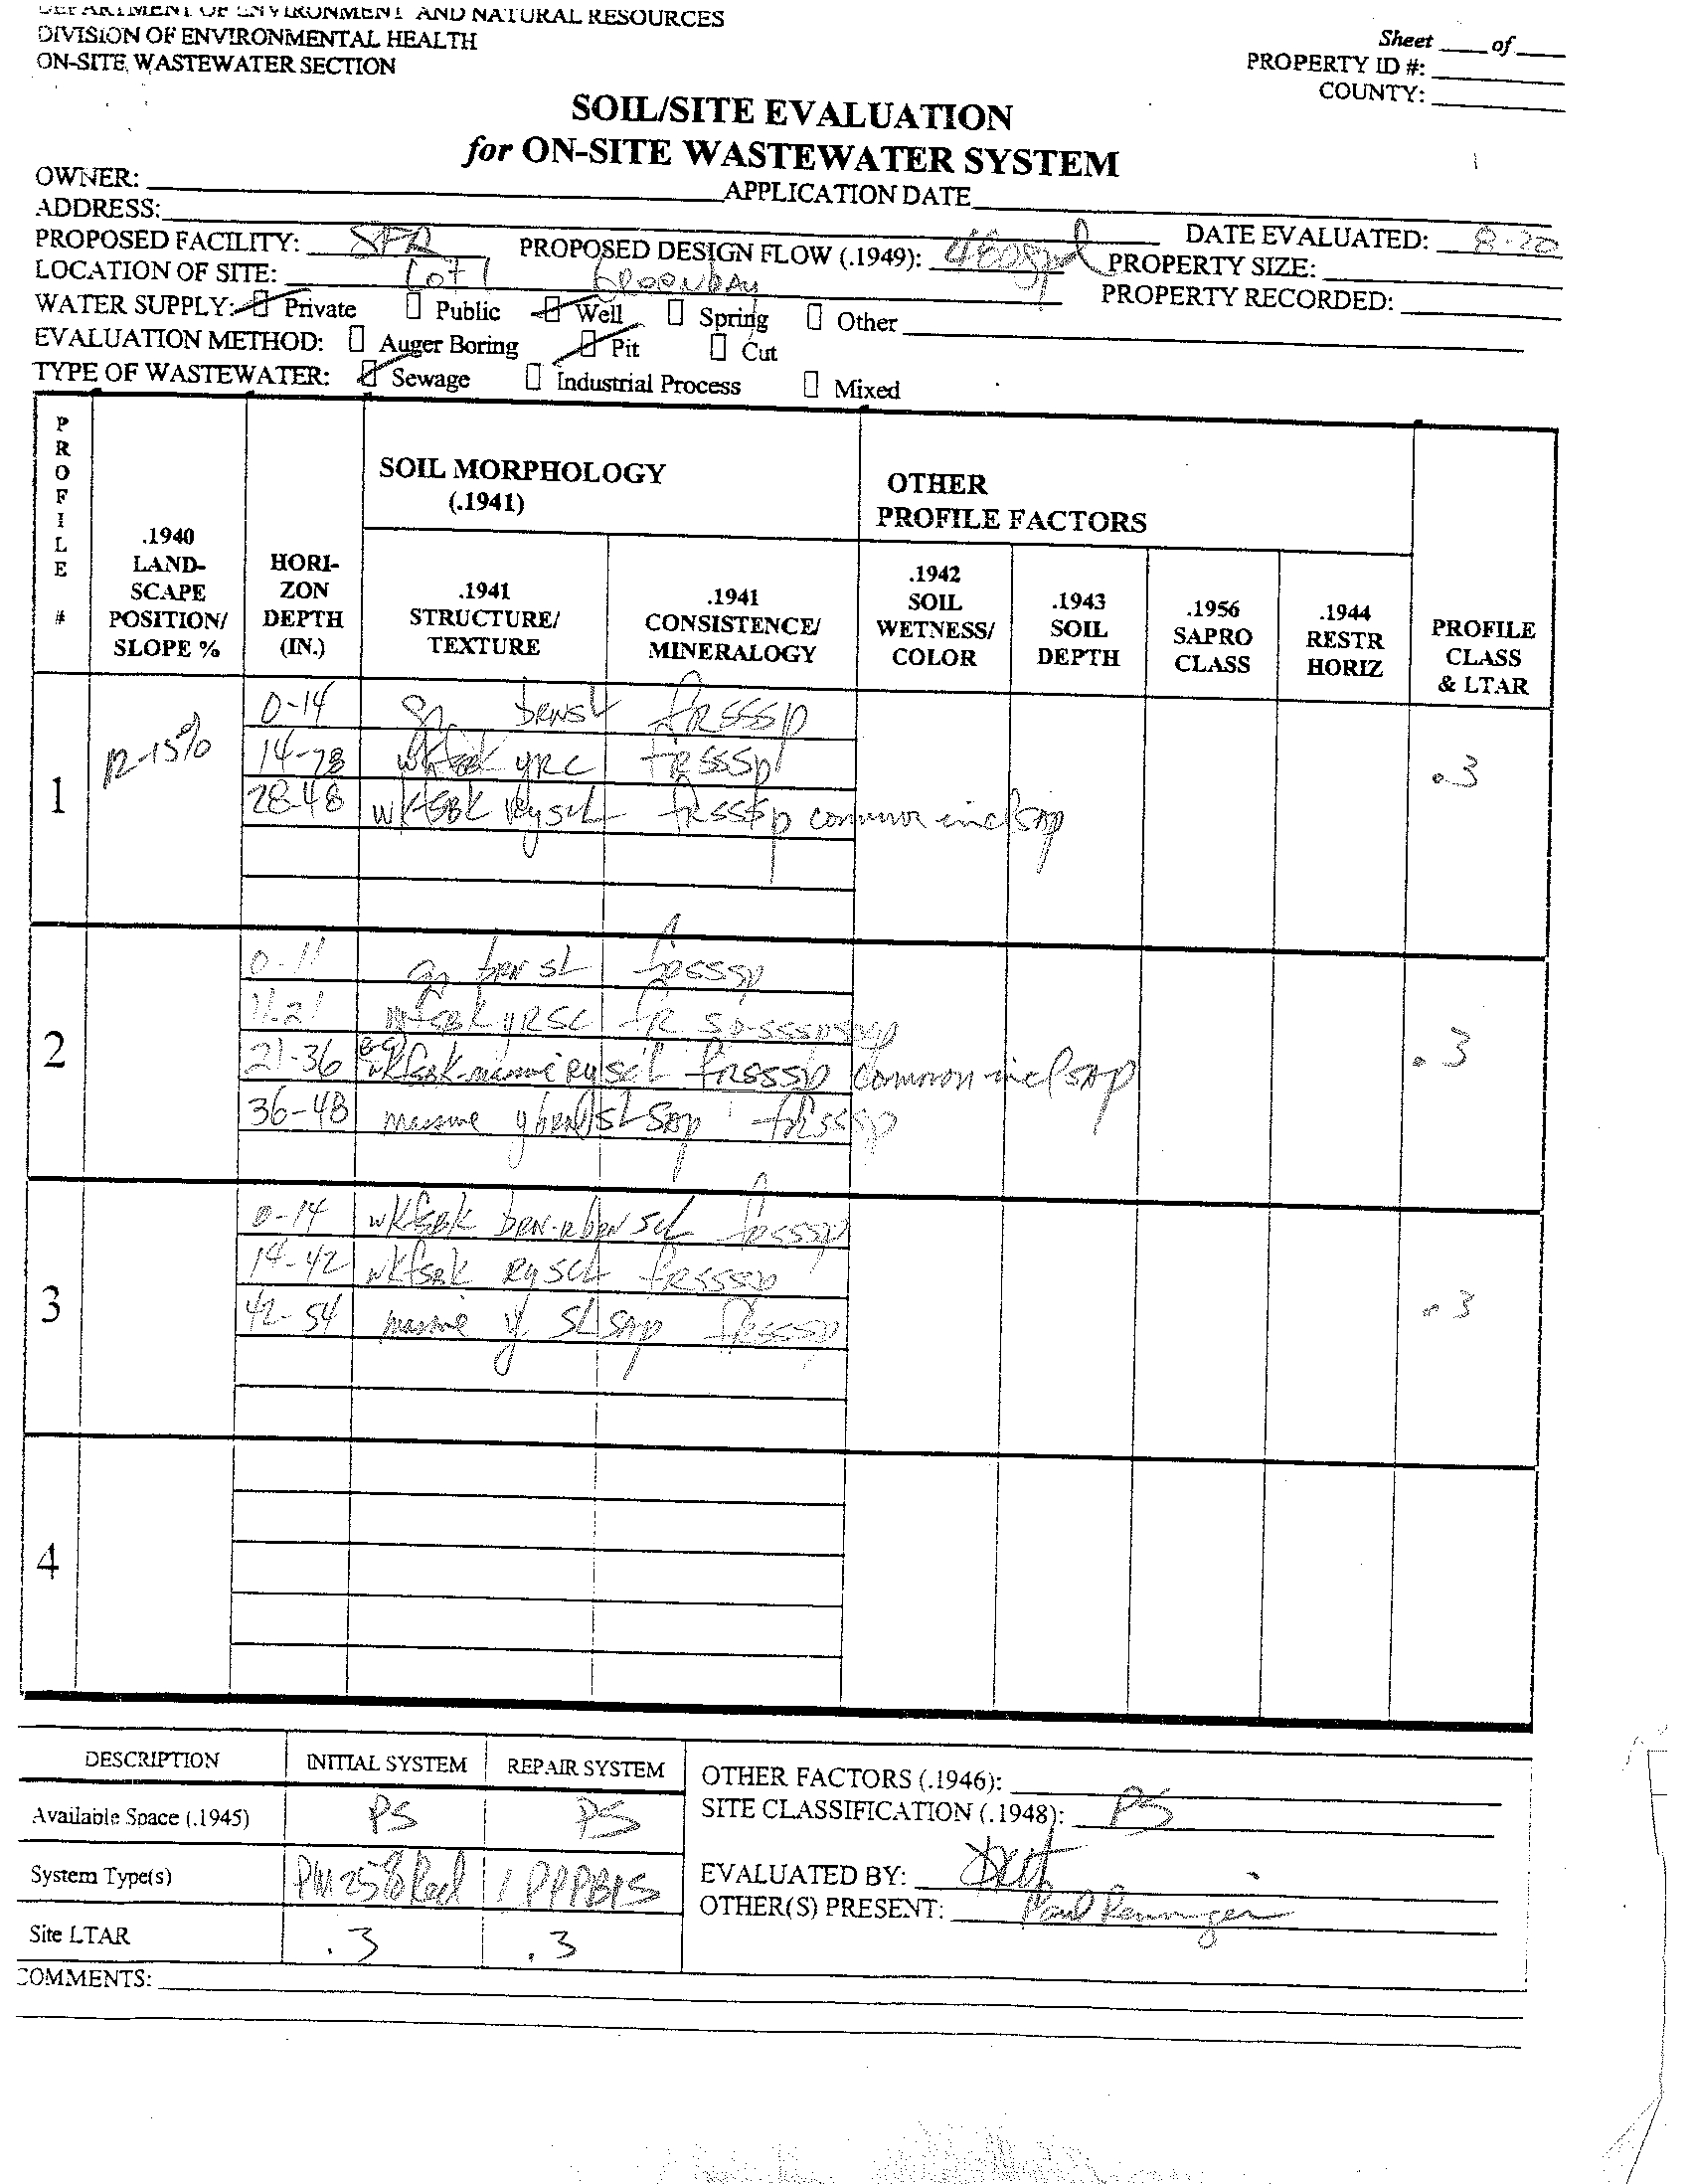 DEPARTMENT OF ENVIRONMENT AND NATURAL RESOURCES
DIVISION OF ENVIRONMENTAL HEALTH
ON-SITE WASTEWATER SECTION
Sheet ____ of ____
PROPERTY ID #:
COUNTY:
SOIL/SITE EVALUATION
for ON-SITE WASTEWATER SYSTEM
OWNER: APPLICATION DATE
ADDRESS:
PROPOSED FACILITY: SFR PROPOSED DESIGN FLOW (.1949): 480gpd DATE EVALUATED: 8-20
LOCATION OF SITE: Lot 1 PROPERTY SIZE:
PROPERTY RECORDED:
WATER SUPPLY: Private Public Well Spring Other
EVALUATION METHOD: Auger Boring Pit Cut
TYPE OF WASTEWATER: Sewage Industrial Process Mixed
PROFILE #
.1940 LAND-SCAPE POSITION/ SLOPE %
HORI-ZON DEPTH (IN.)
SOIL MORPHOLOGY (.1941)
.1941 STRUCTURE/ TEXTURE
.1941 CONSISTENCE/ MINERALOGY
OTHER PROFILE FACTORS
.1942 SOIL WETNESS/ COLOR
.1943 SOIL DEPTH
.1956 SAPRO CLASS
.1944 RESTR HORIZ
PROFILE CLASS & LTAR
1 12-15% .3
0-14 gr brnsl frsssp
14-28 wkfsbk yrc frsssp
28-48 wkfsbk ryscl frsssp common incl sap
2 .3
0-11 gr brn sl frsssp
11-21 wkfsbk yrsc fr
21-36 wkfsbk-massive ryscl frsssp common incl sap
36-48 massive ybrn sl sap frsssp
3 .3
0-14 wkfsbk brn-rbrn scl frsssp
14-42 wkfsbk ryscl frsssp
42-54 massive y sl sap frsssp
4
DESCRIPTION INITIAL SYSTEM REPAIR SYSTEM
Available Space (.1945) PS PS
System Type(s) 25% Red
Site LTAR .3 .3
OTHER FACTORS (.1946):
SITE CLASSIFICATION (.1948): PS
EVALUATED BY:
OTHER(S) PRESENT: Paul
COMMENTS: